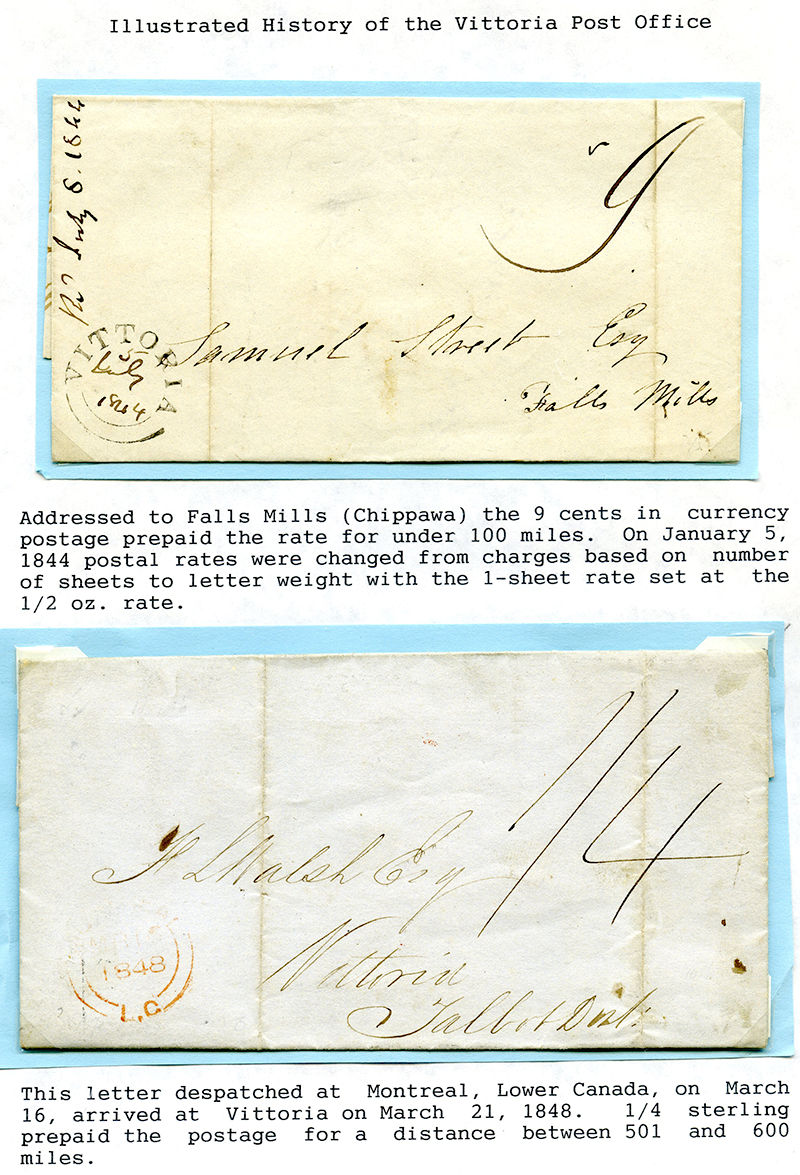 Illustrated History of the Vittoria Post Office
July 8. 1844
9
VITTORIA
5
July
1844
Samuel Street Esq
Falls Mills
Addressed to Falls Mills (Chippawa) the 9 cents in currency
postage prepaid the rate for under 100 miles. On January 5,
1844 postal rates were changed from charges based on number
of sheets to letter weight with the 1-sheet rate set at the
1/2 oz. rate.
1/4
F L Walsh Esq
Vittoria
Talbot Dist:
1848
L.C
This letter despatched at Montreal, Lower Canada, on March
16, arrived at Vittoria on March 21, 1848. 1/4 sterling
prepaid the postage for a distance between 501 and 600
miles.